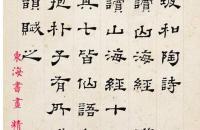 坡和陶詩
讀山海經
讀山海經十
其七皆仙語
抱朴子有所
韻賦之
東海書畫 精